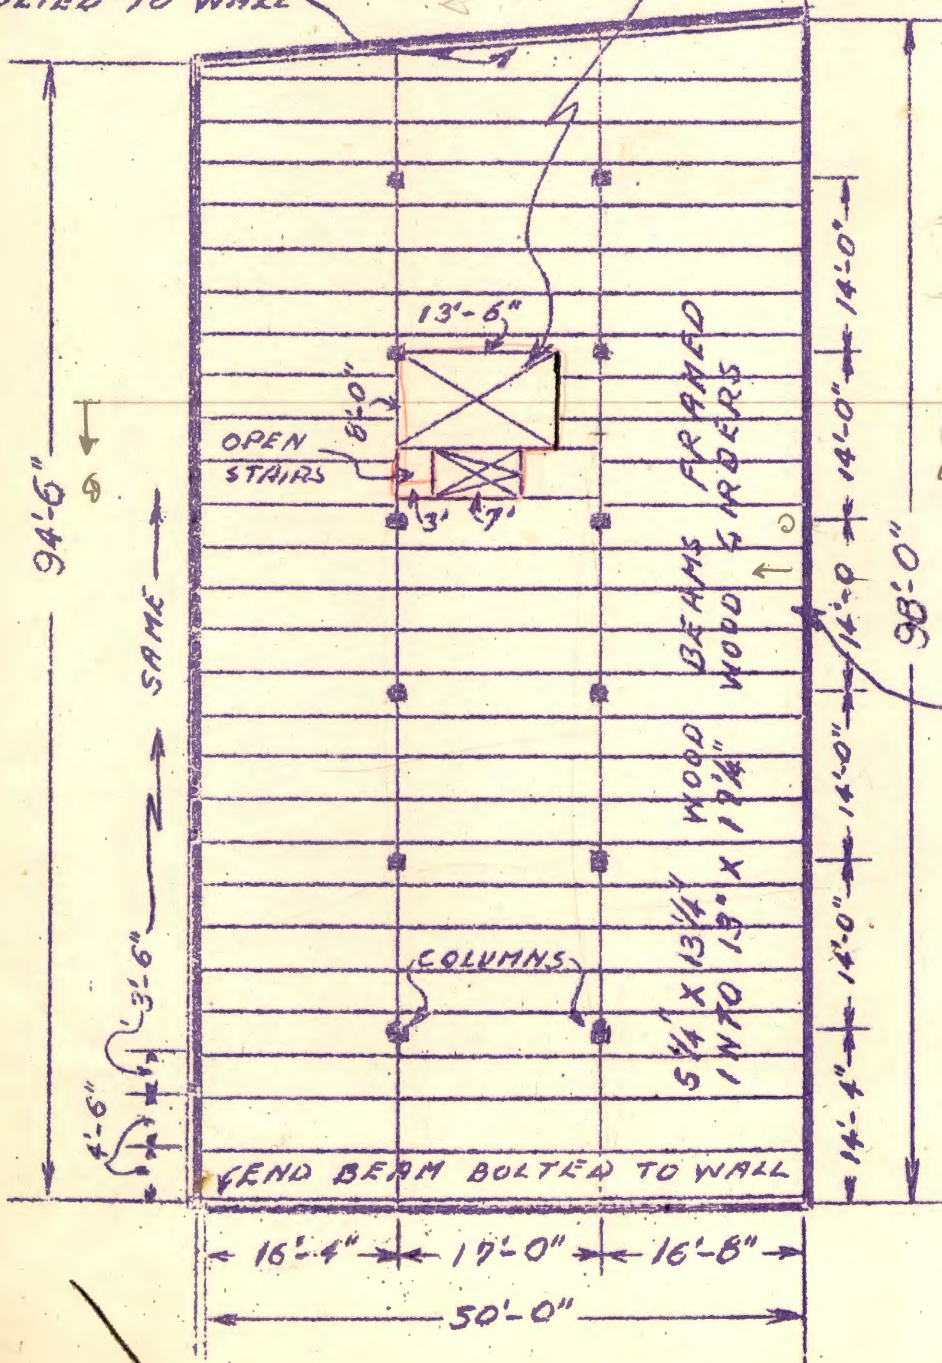 TO WALL
13'-6"
8'-0"
OPEN
STAIRS
3'
7'
94'-6"
SAME
3'-6"
4'-6"
COLUMNS
5 1/4" X 13 1/4" WOOD BEAMS FRAMED
INTO 13" X 17 1/4" WOOD GIRDERS
14'-0"
14'-0"
14'-0
14'-0"
14'-0"
14'-4"
98'-0"
END BEAM BOLTED TO WALL
16'-4"
17'-0"
16'-8"
50'-0"